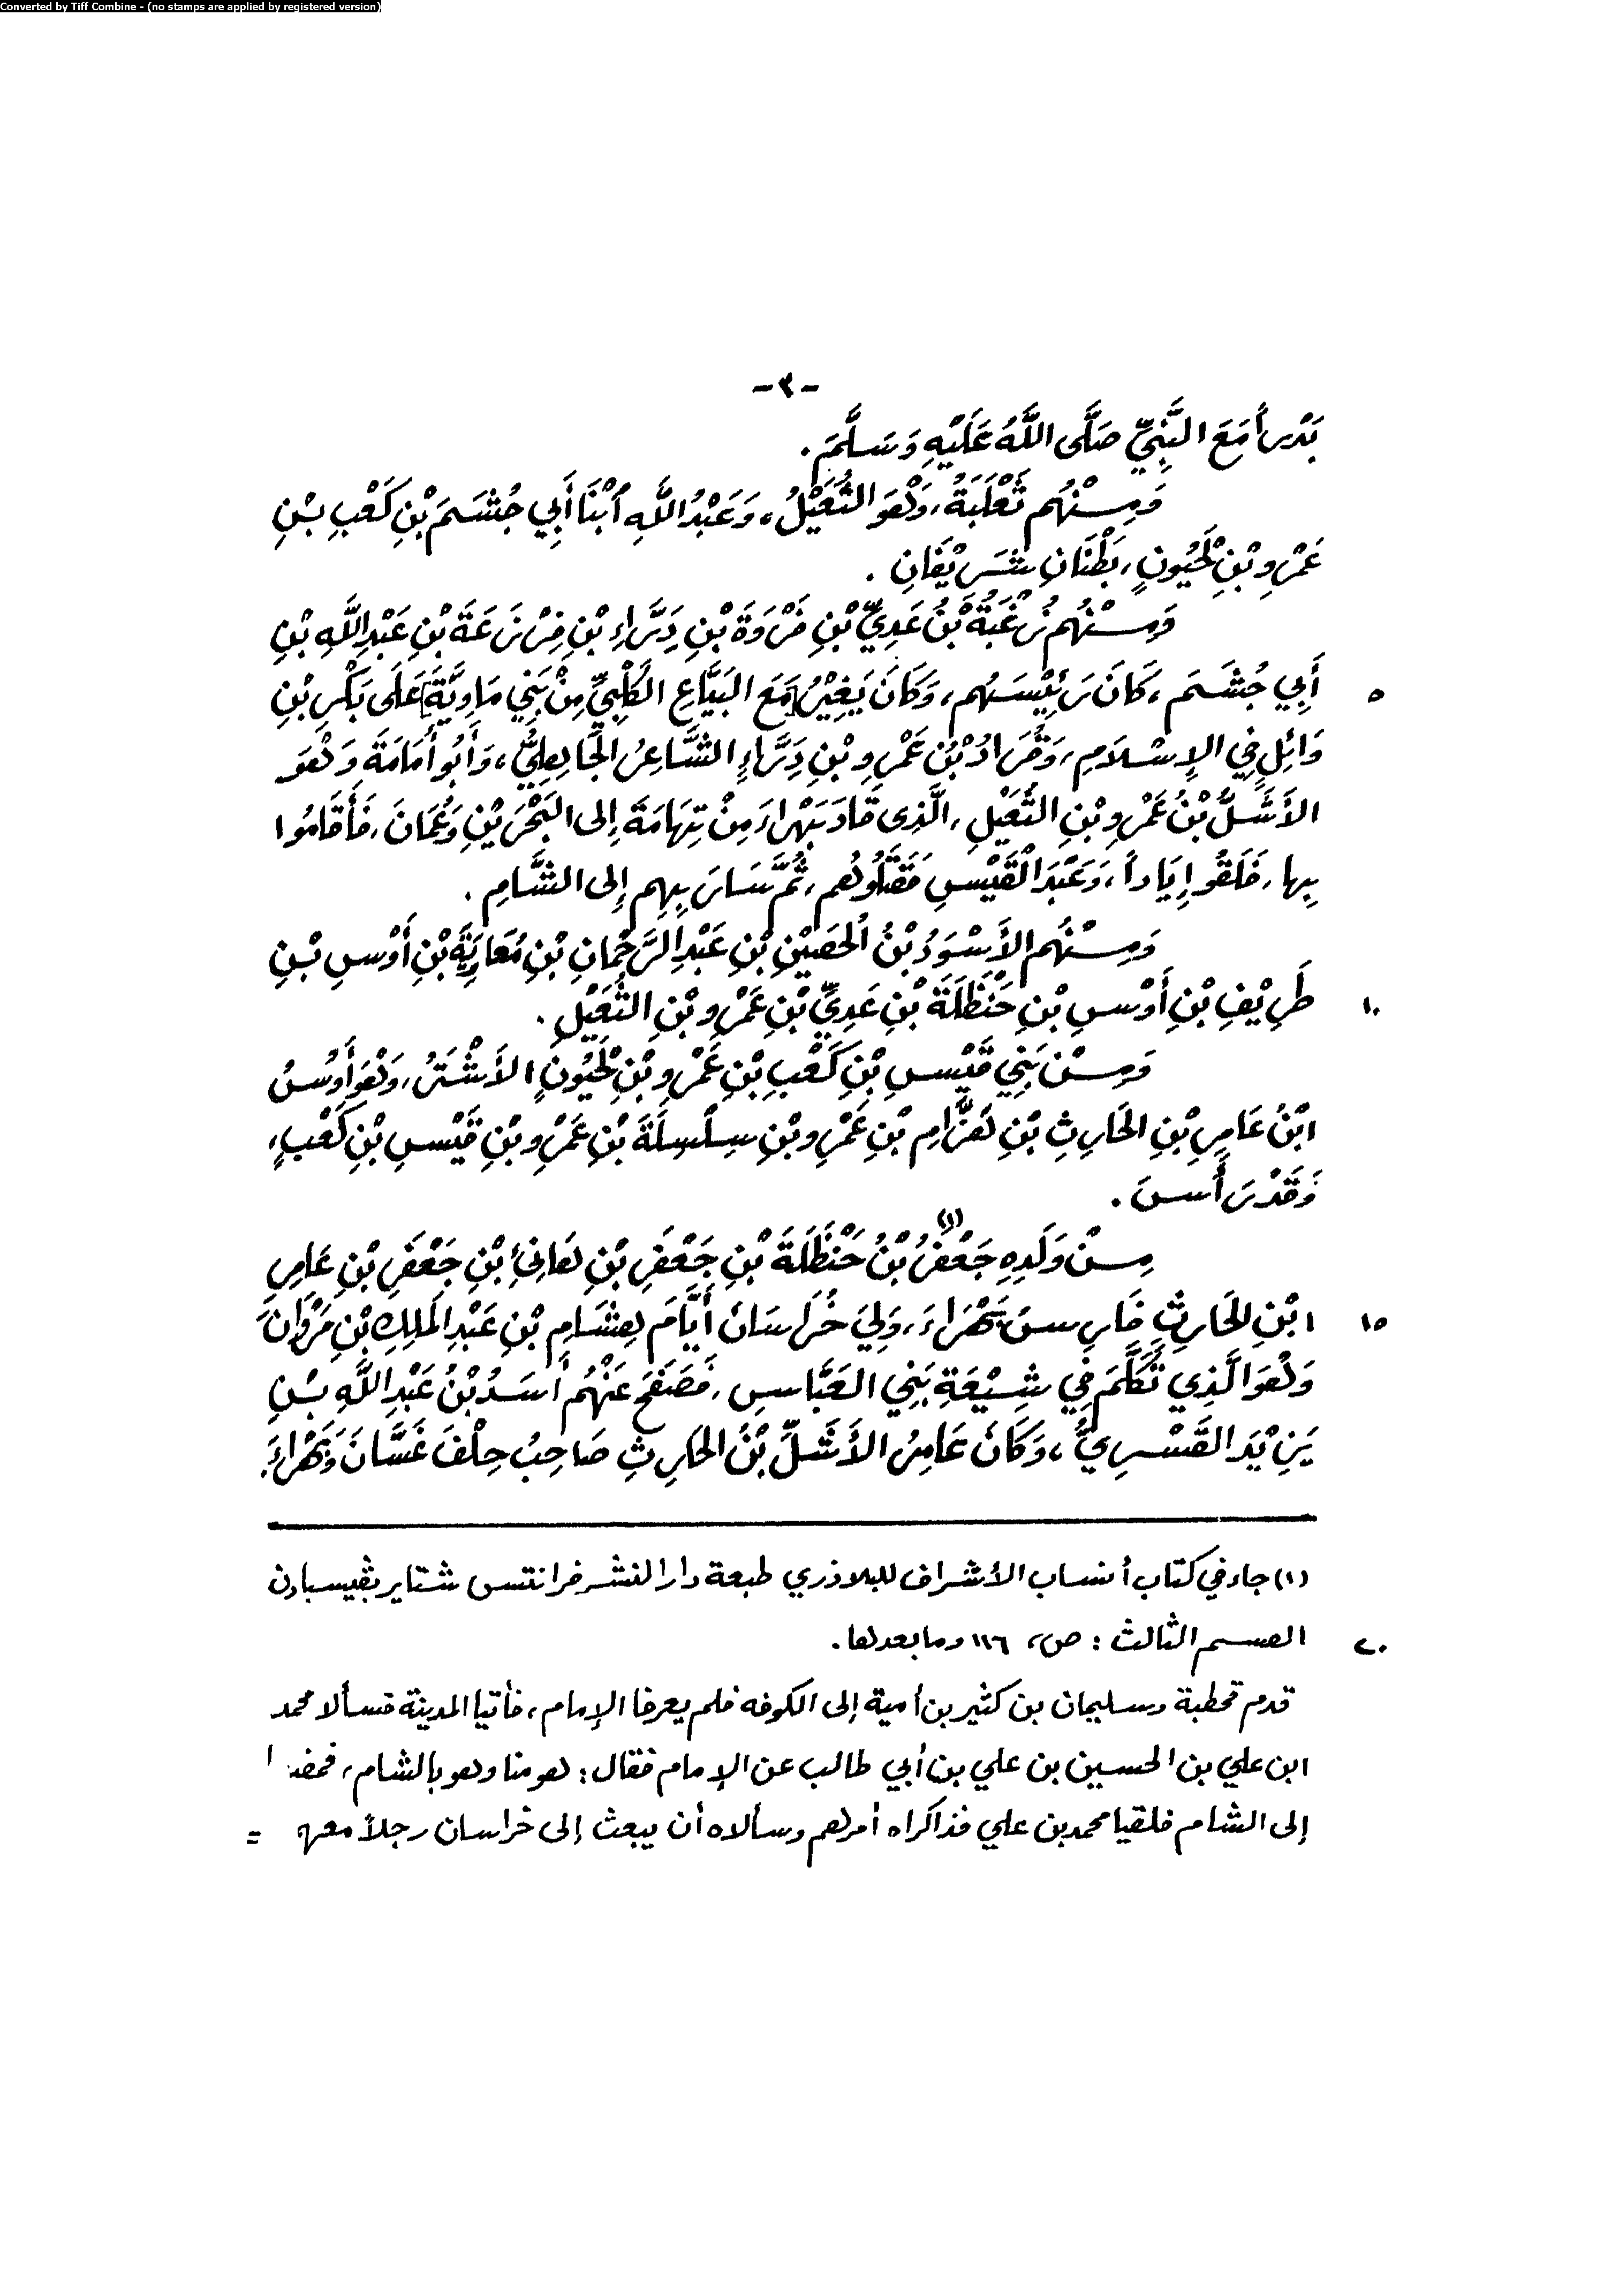 Converted by Tiff Combine - (no stamps are applied by registered version)
-٣-
بَدْراً مَعَ النَّبِيِّ صَلَّى اللَّهُ عَلَيْهِ وَسَلَّمَ .
وَمِنْهُم ثَعْلَبَةُ، وَهُوَ الثُّعَيْلُ، وَعَبْدُ اللَّهِ ابْنَا أَبِي جُشَمَ بْنِ كَعْبِ بْنِ
عَمْرِو بْنِ لَحْيُونٍ، بَطْنَانِ شَرِيْفَانِ .
وَمِنْهُم زُغْبَةُ بْنُ عَدِيِّ بْنِ فَرْوَةَ بْنِ دَرَّاءِ بْنِ فِرْزَعَةَ بْنِ عَبْدِ اللَّهِ بْنِ
أَبِي جُشَمَ، كَانَ رَئِيْسَهُم، وَكَانَ يَغِيْرُ [مَعَ البَيَّاعِ الكَلْبِيِّ مِنْ بَنِي مَاوِيَّةَ] عَلَى بَكْرِ بْنِ
٥
وَائِلٍ فِي الإِسْلَامِ، وَقُرَادُ بْنُ عَمْرِو بْنِ دَرَّاءِ الشَّاعِرُ الجَاهِلِيُّ، وَأَبُو أُمَامَةَ وَهُوَ
الأَشَلُّ بْنُ عَمْرِو بْنِ الثُّعَيْلِ، الَّذِي قَادَ بَهْرَاءَ مِنْ تِهَامَةَ إِلى البَحْرَيْنِ وَعُمَانَ، فَأَقَامُوا
بِها، فَلَقُوا إِيَاداً، وَعَبْدَ الْقَيْسِ فَقَتَلُوهُم، ثُمَّ سَارَ بِهِم إِلى الشَّامِ .
وَمِنْهُم الأَسْوَدُ بْنُ الحُصَيْنِ بْنِ عَبْدِ الرَّحْمَانِ بْنِ مُعَاوِيَةَ بْنِ أَوْسِ بْنِ
طَرِيْفِ بْنِ أَوْسِ بْنِ حَنْظَلَةَ بْنِ عَدِيِّ بْنِ عَمْرِو بْنِ الثُّعَيْلِ .
١٠
وَمِنْ بَنِي قَيْسِ بْنِ كَعْبِ بْنِ عَمْرِو بْنِ لَحْيُونٍ الأَشْتَرُ، وَهُوَ أَوْسُ
ابْنُ عَامِرِ بْنِ الحَارِثِ بْنِ هَزَّامِ بْنِ عَمْرِو بْنِ سِلْسِلَةَ بْنِ عَمْرِو بْنِ قَيْسِ بْنِ كَعْبٍ،
وَقَدْ رَأَسَ .
مِنْ وَلَدِهِ جَعْفَرُ (١) بْنُ حَنْظَلَةَ بْنِ جَعْفَرِ بْنِ هَانِئِ بْنِ جَعْفَرِ بْنِ عَامِرِ
ابْنِ الحَارِثِ فَارِسُ بَهْرَاءَ، وَلِيَ خُرَاسَانَ أَيَّامَ هِشَامِ بْنِ عَبْدِ المَلِكِ بْنِ مَرْوَانَ
١٥
وَهُوَ الَّذِي تَكَلَّمَ فِي شِيْعَةِ بَنِي العَبَّاسِ، فَصَفَحَ عَنْهُم أَسَدُ بْنُ عَبْدِ اللَّهِ بْنِ
يَزِيْدَ القَسْرِيُّ، وَكَانَ عَامِرُ الأَشَلِّ بْنُ الحَارِثِ صَاحِبُ حِلْفَ غَسَّانَ وَبَهْرَاءَ.
(١) جاء في كتاب أنساب الأشراف للبلاذري طبعة دار النشر فرانتس شتاير بڤيسبادن
القسم الثالث : ص، ١١٦ وما بعدها.
٢٠
قدم قحطبة وسليمان بن كثير بن أمية إلى الكوفه فلم يعرفا الإمام، فأتيا المدينة فسألا محمد
ابن علي بن الحسين بن علي بن أبي طالب عن الإمام فقال: هو منا وهو بالشام، فمضيا
إلى الشام فلقيا محمد بن علي فذاكراه أمرهم وسألاه أن يبعث إلى خراسان رجلاً معهم =